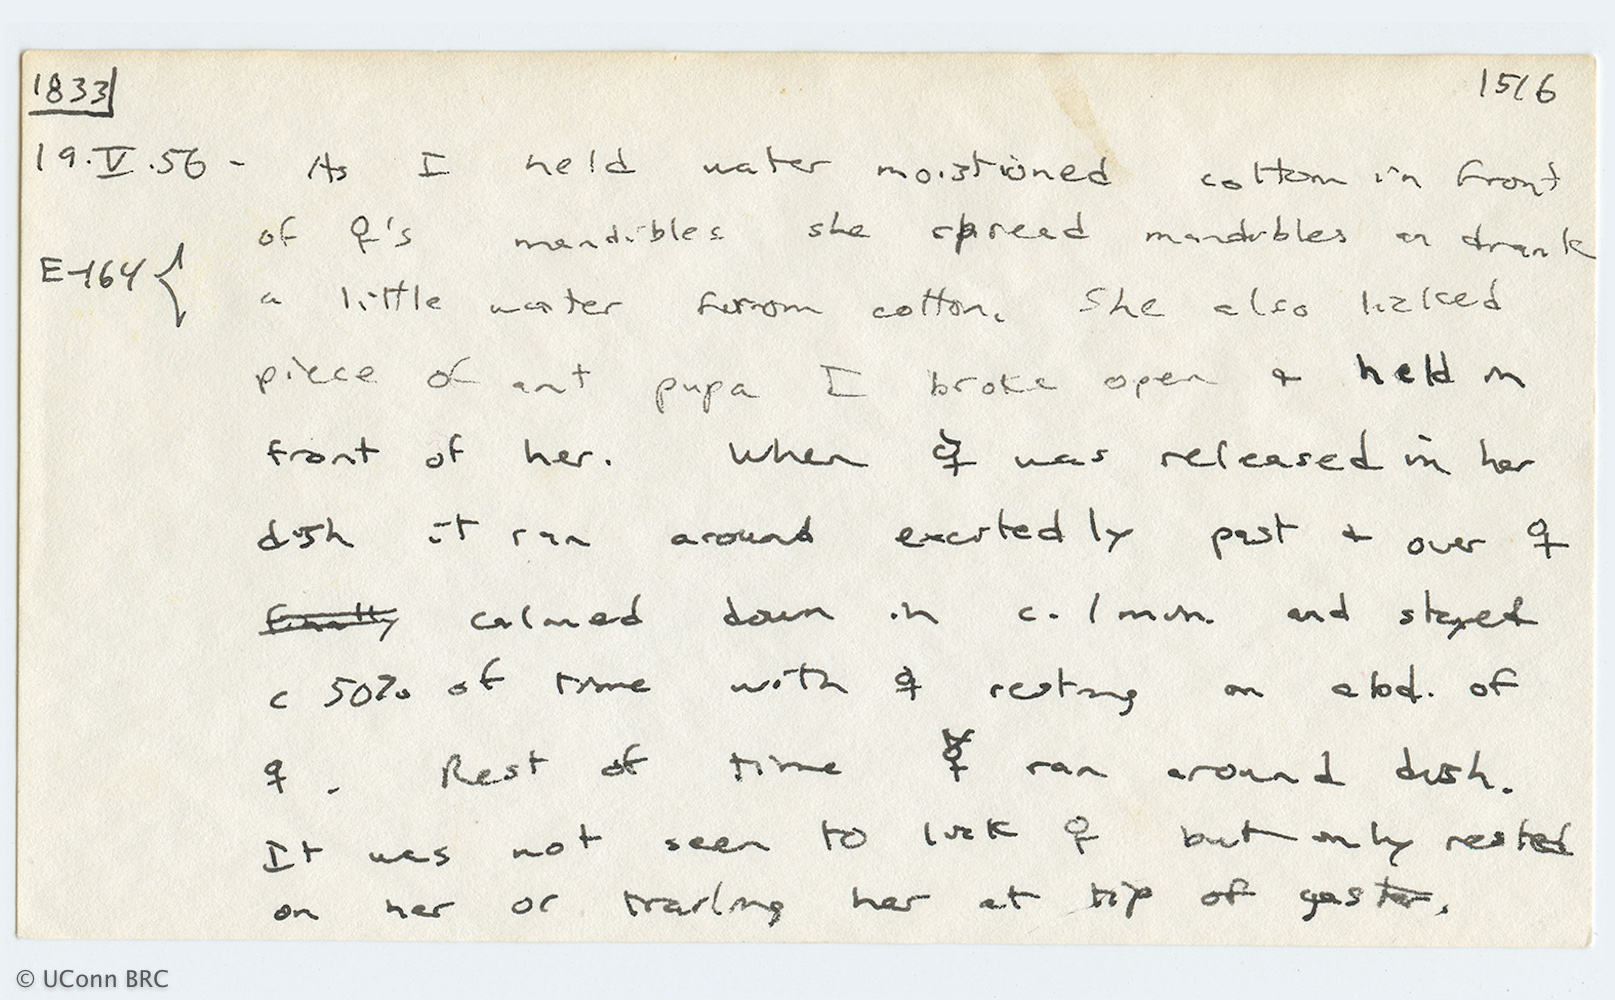 1833 1516
19.V.56 - As I held water moistioned cotton in front
of ♀'s mandibles she spread mandibles an drank
E-164 { a little water from cotton. She also licked
piece of ant pupa I broke open + held in
front of her. When ☿ was released in her
dish it ran around excitedly past + over ♀
finally calmed down in c. 1 min. and stayed
c 50% of time with ♀ resting on abd. of
♀. Rest of time ☿ ran around dish.
It was not seen to lick ♀ but only rested
on her or trailing her at tip of gaster.
© UConn BRC